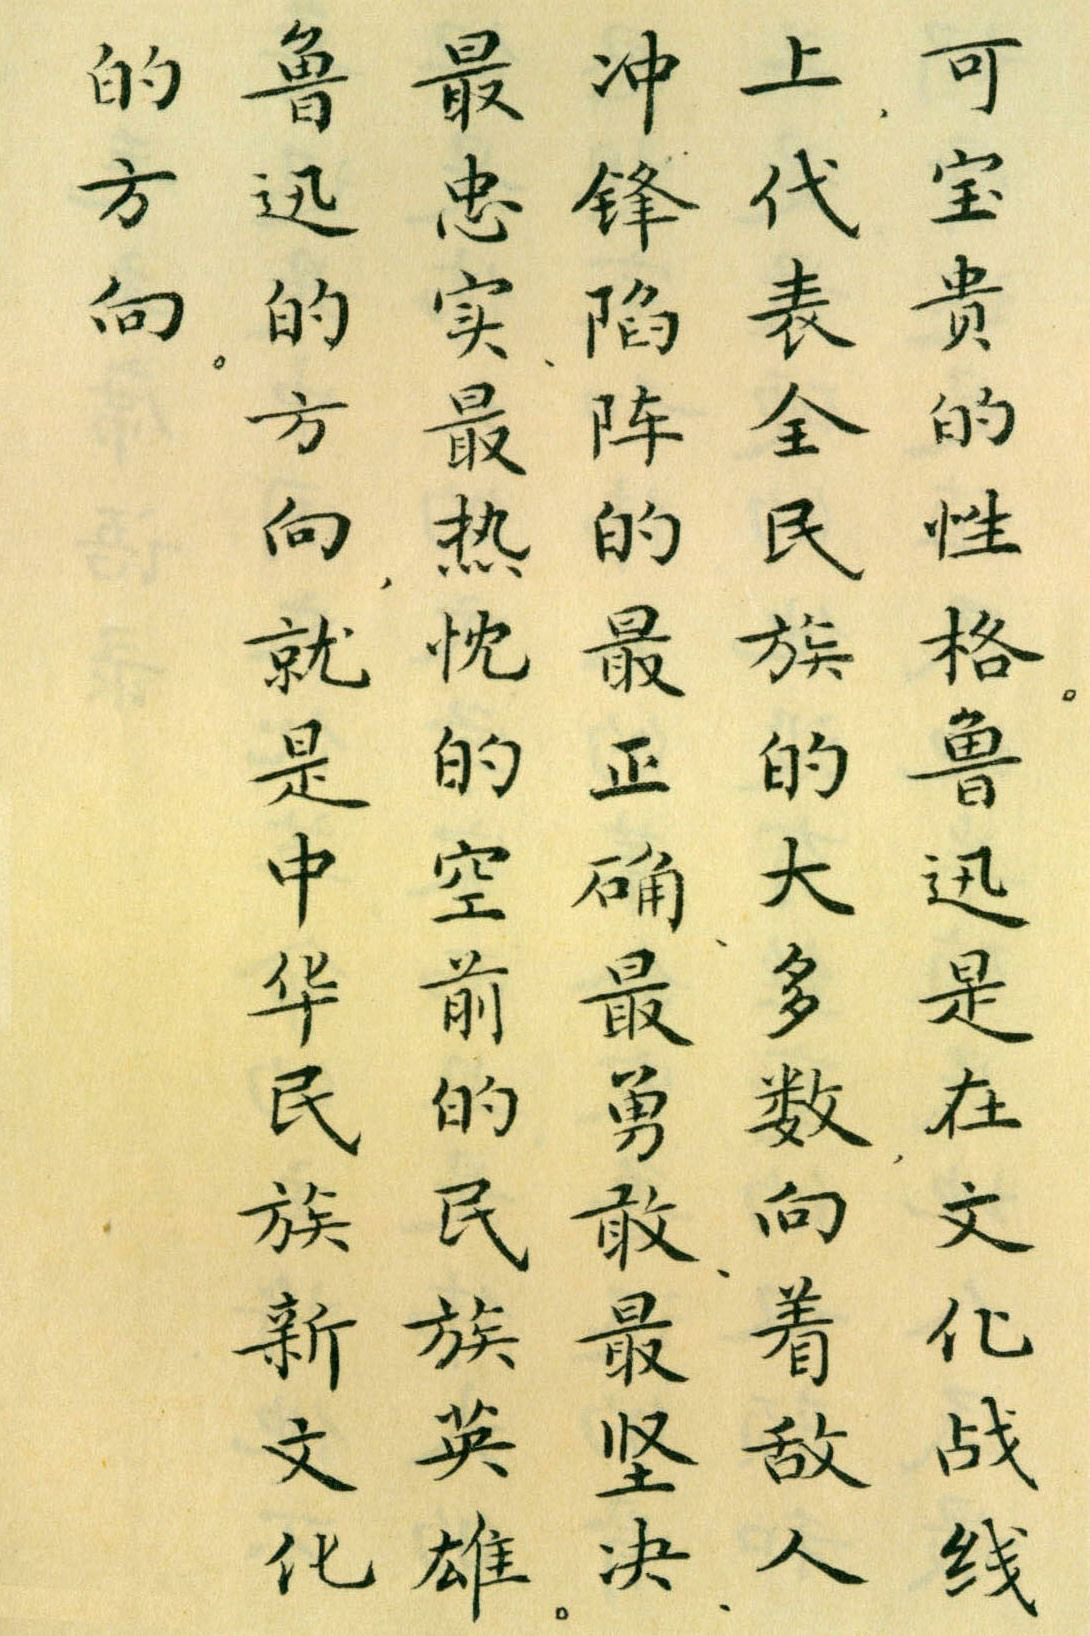 可宝贵的性格。鲁迅是在文化战线
上，代表全民族的大多数，向着敌人
冲锋陷阵的最正确、最勇敢、最坚决、
最忠实、最热忱的空前的民族英雄。
鲁迅的方向，就是中华民族新文化
的方向。